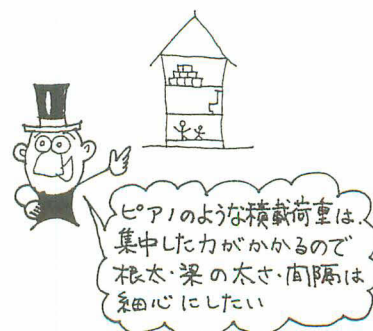 ピアノのような積載荷重は、
集中した力がかかるので
根太・梁の太さ・間隔は
細心にしたい